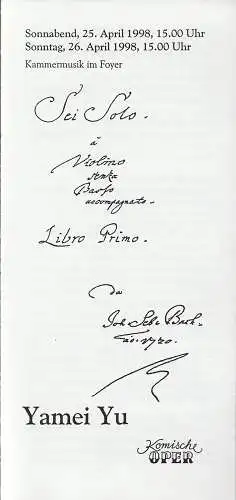 Sonnabend, 25. April 1998, 15.00 Uhr
Sonntag, 26. April 1998, 15.00 Uhr
Kammermusik im Foyer
Sei Solo.
à
Violino
senza
Basso
accompagnato.
Libro Primo.
da
Joh. Seb. Bach.
ao. 1720.
Yamei Yu
Komische
OPER